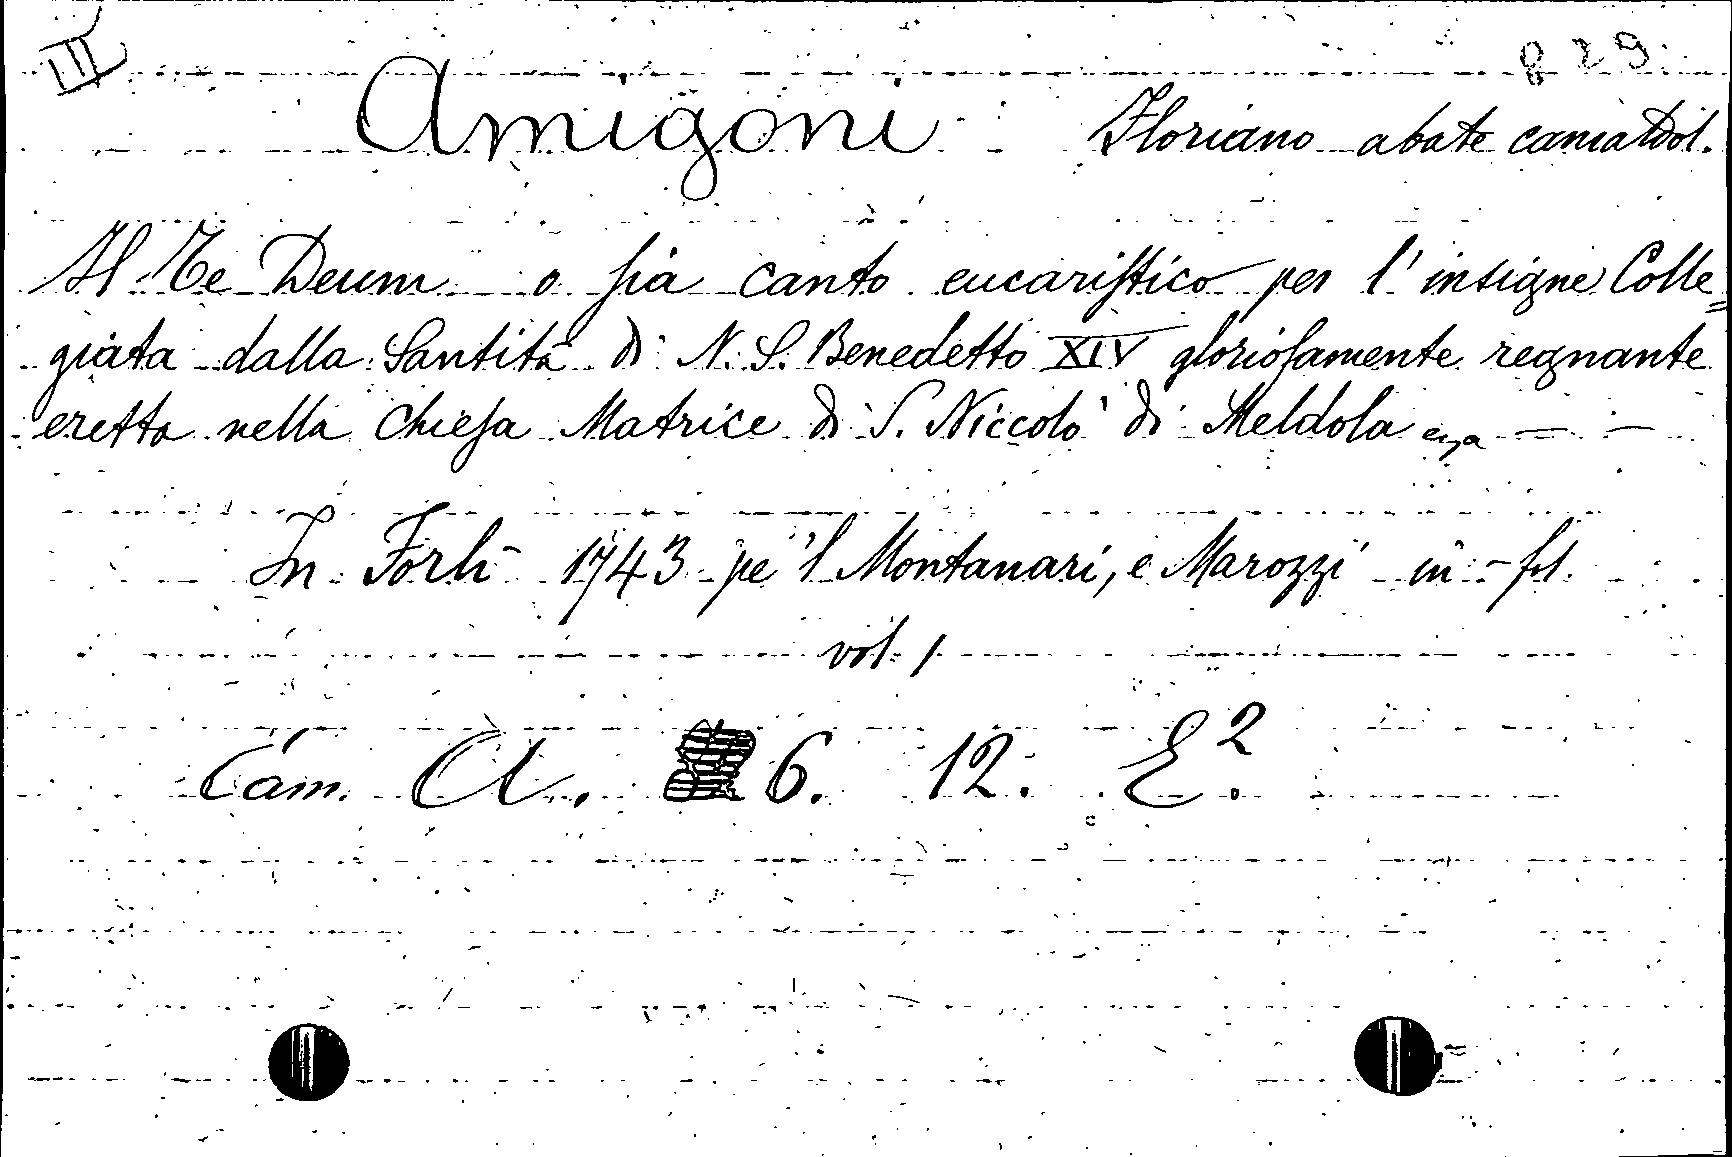 III 829
Amigoni Floriano abate camaldol.
Il Te Deum o ſia canto eucariſtico per l' insigne Colle=
giata dalla Santità di N. S. Benedetto XIV glorioſamente regnante
eretta nella Chieſa Matrice di S. Niccolò di Meldola
In Forlì 1743 pe 'l Montanari, e Marozzi in-fol.
vol. 1
Cam. A. 6. 12. E.²